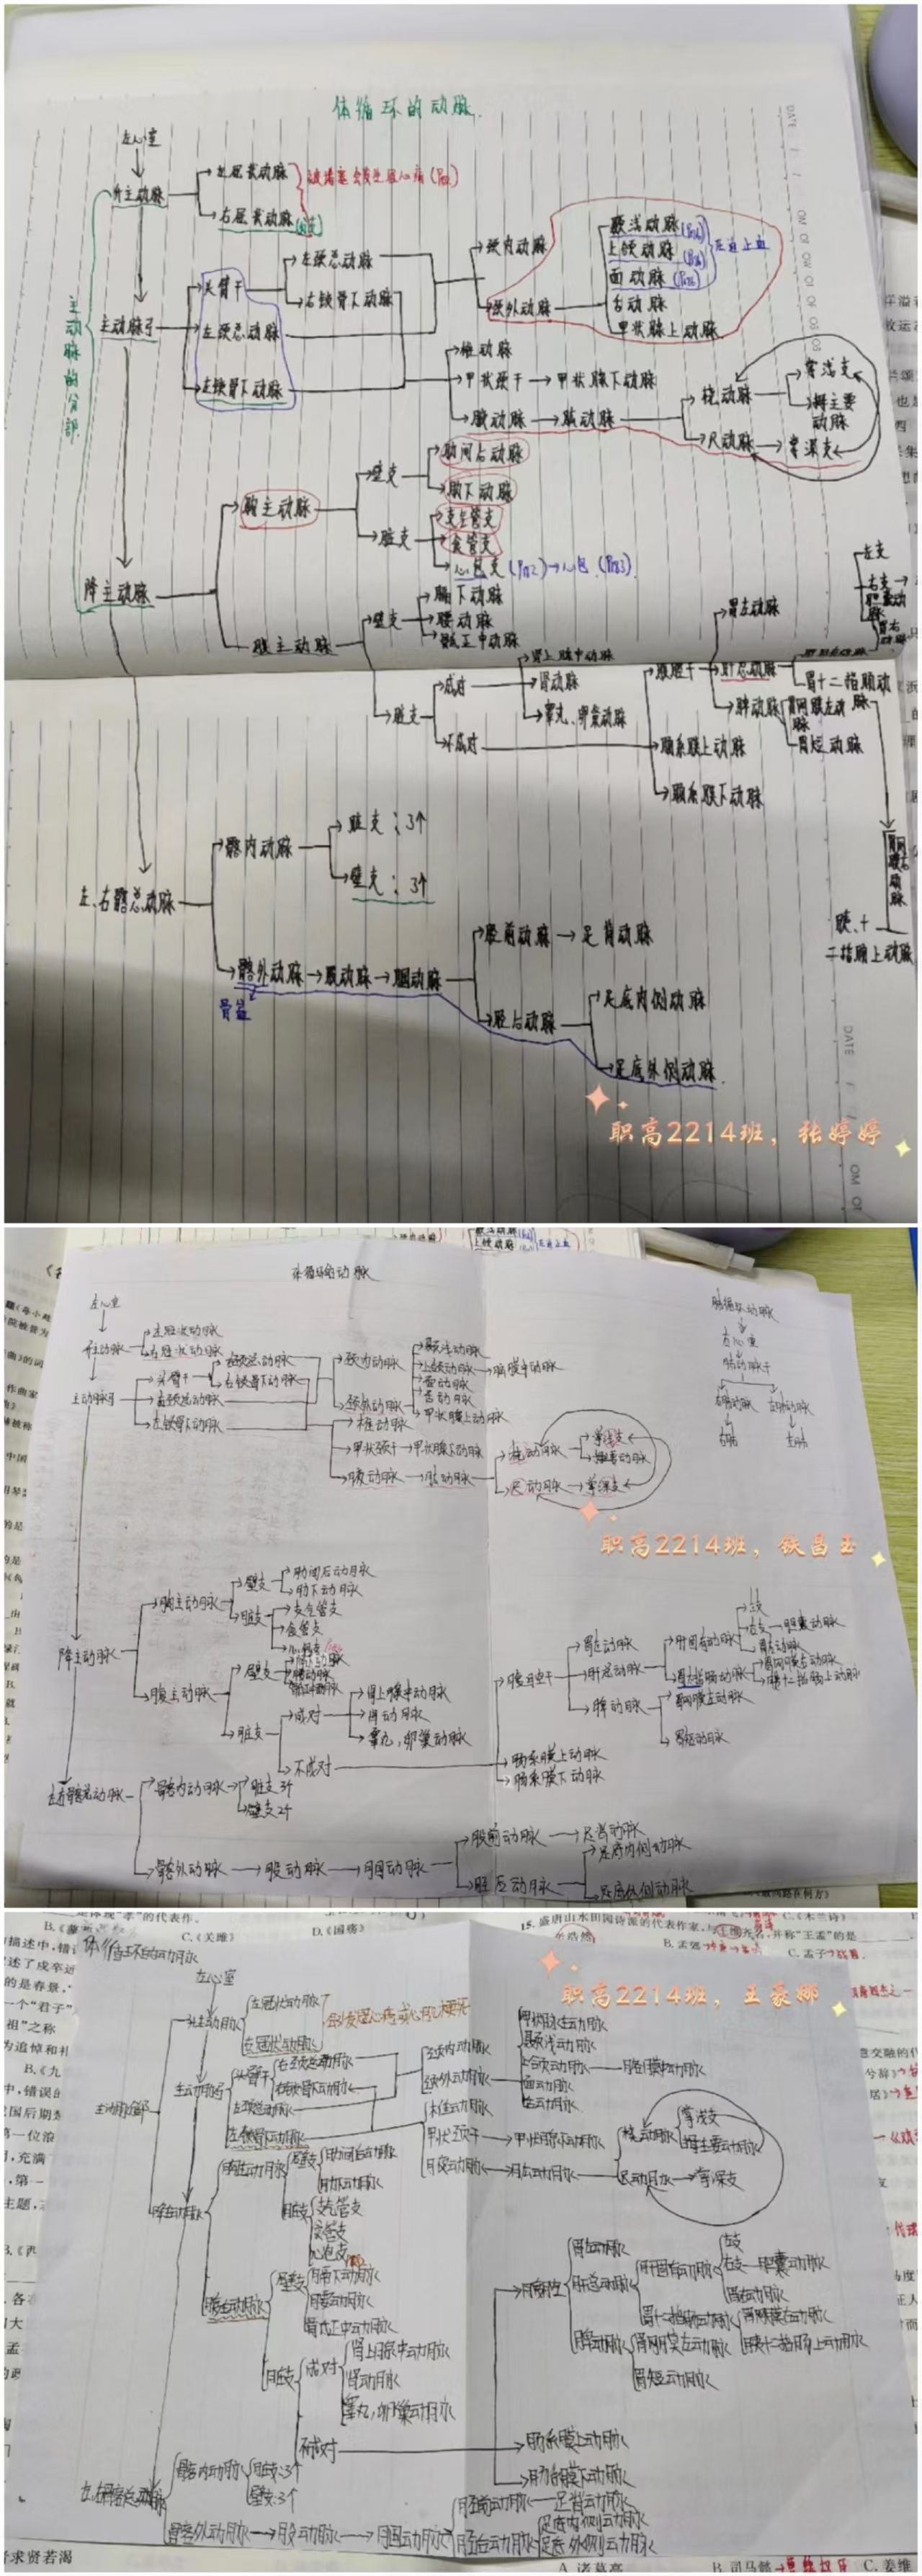 体循环的动脉.
左心室
升主动脉
左冠状动脉
右冠状动脉
主动脉的分部
主动脉弓
头臂干
左颈总动脉
右锁骨下动脉
左颈总动脉
左锁骨下动脉
颈内动脉
颈外动脉
颞浅动脉
上颌动脉
面动脉
舌动脉
甲状腺上动脉
压迫止血
椎动脉
甲状颈干
甲状腺下动脉
腋动脉
肱动脉
桡动脉
尺动脉
掌浅支
拇主要
动脉
掌深支
降主动脉
胸主动脉
壁支
肋间后动脉
肋下动脉
脏支
支气管支
食管支
心包支
腹主动脉
壁支
膈下动脉
腰动脉
骶正中动脉
脏支
成对
肾上腺中动脉
肾动脉
睾丸、卵巢动脉
不成对
腹腔干
胃左动脉
肝总动脉
脾动脉
左支
右支
胃十二指肠动
脉
胃网膜左动
脉
胃短动脉
肠系膜上动脉
肠系膜下动脉
胰、十
二指肠上动脉
左、右髂总动脉
髂内动脉
脏支:3个
壁支:3个
髂外动脉
股动脉
腘动脉
胫前动脉
足背动脉
胫后动脉
足底内侧动脉
足底外侧动脉.
DATE
职高2214班，张婷婷
体循环的动脉
左心室
升主动脉
左冠状动脉
右冠状动脉
主动脉弓
头臂干
右锁骨下动脉
左锁骨下动脉
颈内动脉
颈外动脉
颞浅动脉
上颌动脉
脑膜中动脉
面动脉
舌动脉
甲状腺上动脉
椎动脉
甲状颈干
甲状腺下动脉
腋动脉
肱动脉
桡动脉
尺动脉
掌浅支
掌深支
肺循环动脉
右心室
肺动脉干
右肺动脉
左肺动脉
右肺
左肺
职高2214班，铁昌玉
降主动脉
胸主动脉
壁支
肋间后动脉
肋下动脉
脏支
支气管支
食管支
腹主动脉
壁支
脏支
成对
肾上腺中动脉
肾动脉
睾丸,卵巢动脉
不成对
腹腔干
胃左动脉
肝总动脉
脾动脉
肝固有动脉
左支
右支
胆囊动脉
胃右动脉
胃网膜右动脉
胰十二指肠上动脉
胃网膜左动脉
胃短动脉
肠系膜上动脉
肠系膜下动脉
左右髂总动脉
髂内动脉
脏支3个
壁支2个
髂外动脉
股动脉
腘动脉
足背动脉
足底内侧动脉
足底外侧动脉
C.《关雎》
D.《国殇》
15. 盛唐山水田园诗派的代表作家，与王维齐名，并称“王孟”的是
职高2214班，王豪娜
体循环的动脉
左心室
升主动脉
左冠状动脉
右冠状动脉
主动脉弓
头臂干
右锁骨下动脉
左颈总动脉
左锁骨下动脉
颈内动脉
颈外动脉
甲状腺上动脉
颞浅动脉
上颌动脉
脑膜中动脉
面动脉
舌动脉
椎动脉
甲状颈干
甲状腺下动脉
腋动脉
肱动脉
桡动脉
尺动脉
掌浅支
拇主要动脉
掌深支
降主动脉
胸主动脉
壁支
肋间后动脉
肋下动脉
脏支
支气管支
食管支
心包支
腹主动脉
壁支
膈下动脉
腰动脉
骶正中动脉
脏支
成对
肾上腺中动脉
肾动脉
睾丸,卵巢动脉
不成对
胃左动脉
肝总动脉
脾动脉
肝固有动脉
左支
右支
胆囊动脉
胃右动脉
胃十二指肠动脉
胃网膜右动脉
胰十二指肠上动脉
胃网膜左动脉
胃短动脉
肠系膜上动脉
肠系膜下动脉
左、右髂总动脉
髂内动脉
脏支:3个
壁支:3个
髂外动脉
股动脉
腘动脉
胫前动脉
足背动脉
胫后动脉
足底内侧动脉
足底外侧动脉
求贤若渴
A. 诸葛亮
B. 司马懿
C. 姜维